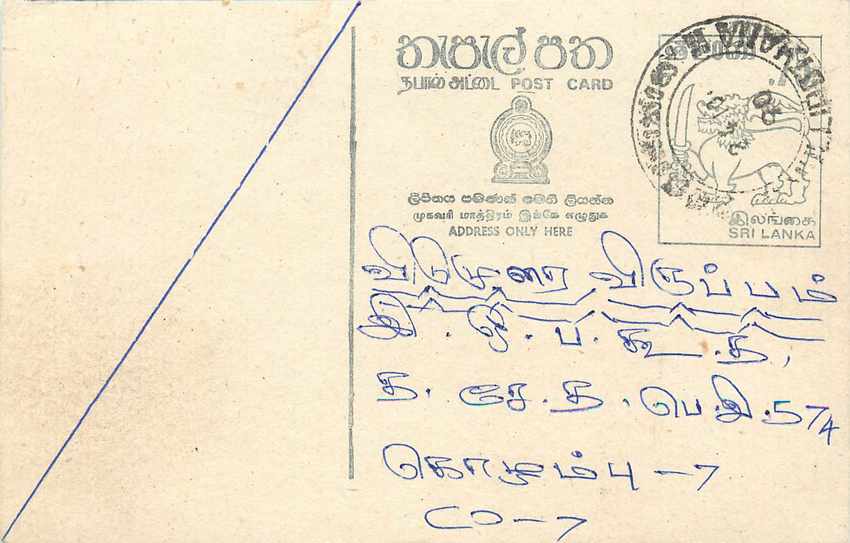 තැපැල් පත
தபால் அட்டை POST CARD
ලිපිනය පමණක් මෙහි ලියන්න
முகவரி மாத்திரம் இங்கே எழுதுக
ADDRESS ONLY HERE
இலங்கை
SRI LANKA
விடுமுறை விருப்பம்
இ. ஒ. ப. கூ. த,
த. சே. த. பெ. இ. 574
கொழும்பு - 7
CO - 7